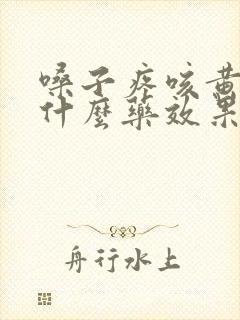 嗓子疼咳黄
什麼藥效果
舟行水上